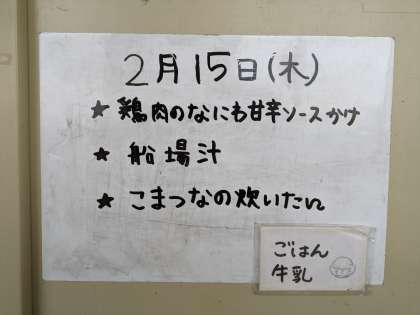 2月15日(木)
★ 鶏肉のなにも甘辛ソースかけ
★ 船場汁
★ こまつなの炊いたん
ごはん
牛乳